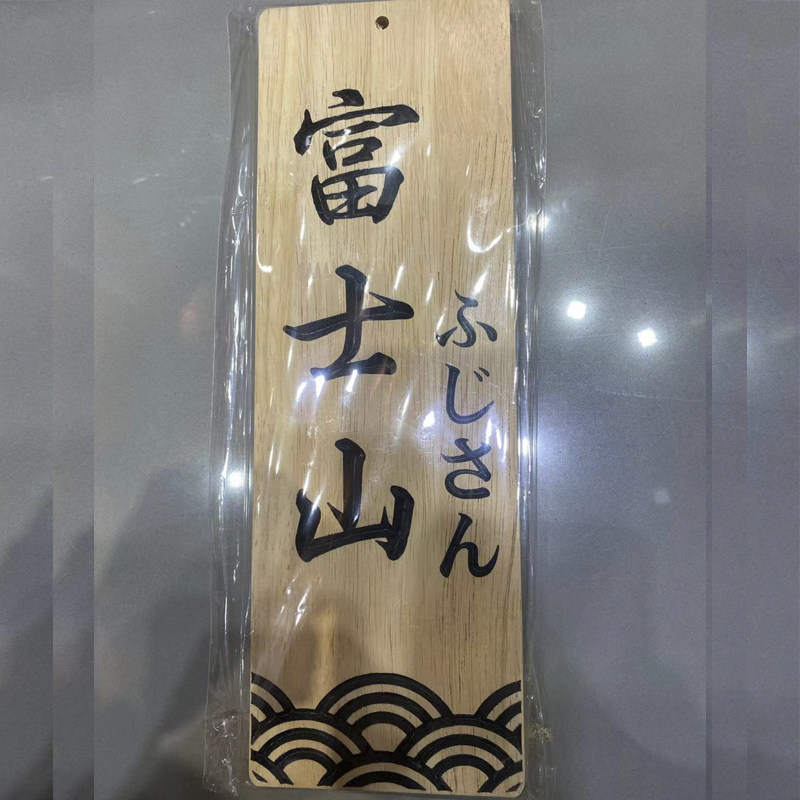 富士山
ふじさん